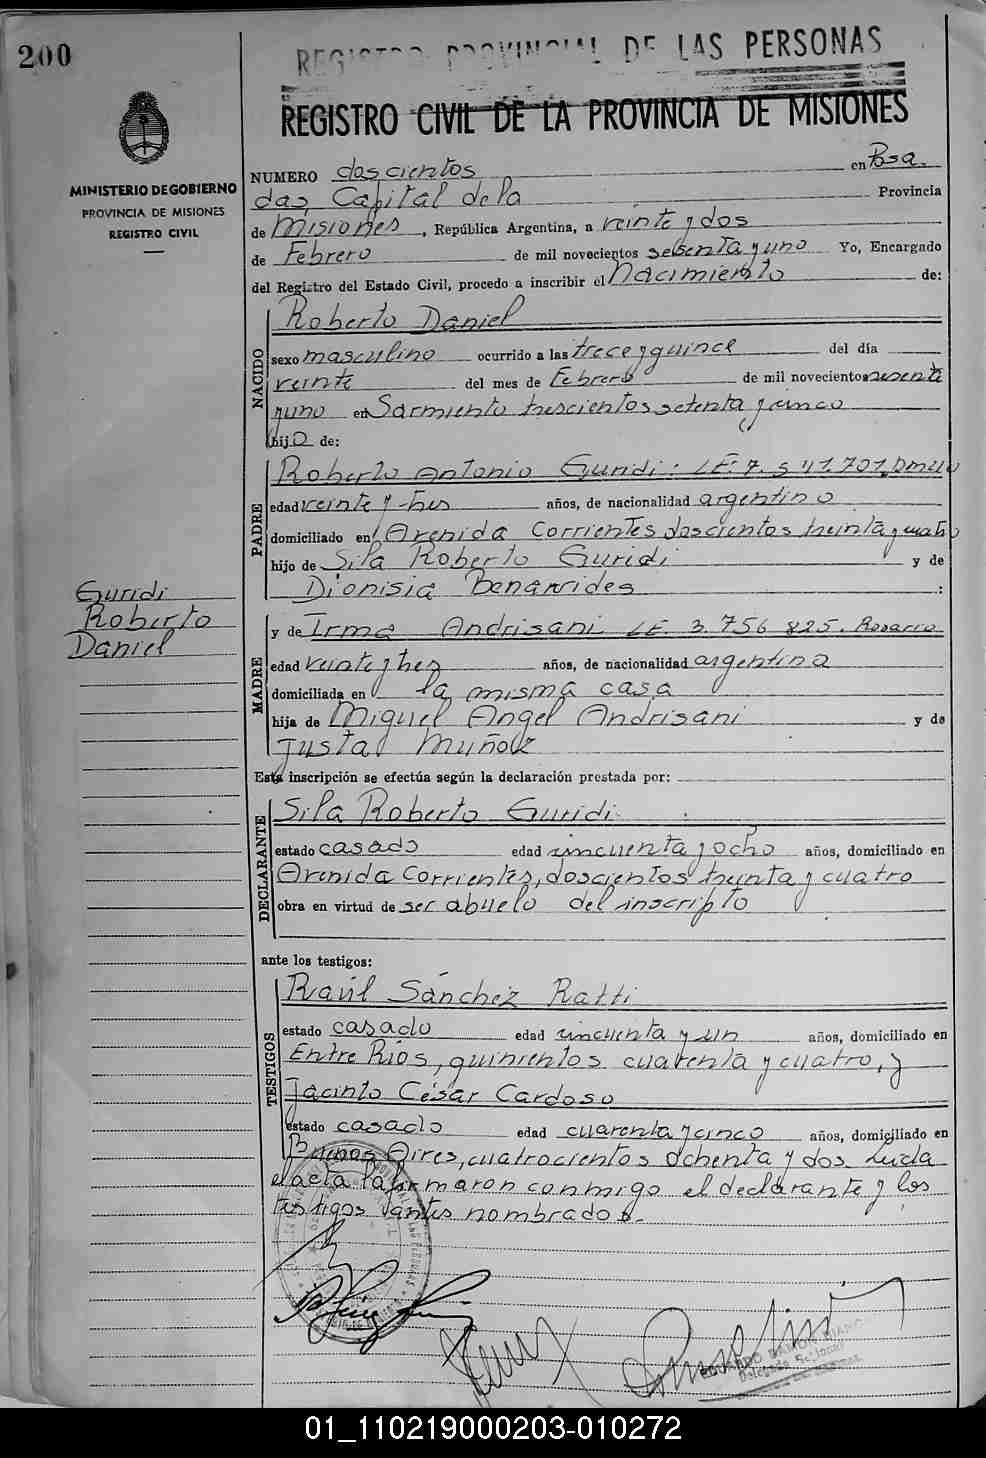 200
REGISTRO PROVINCIAL DE LAS PERSONAS
REGISTRO CIVIL DE LA PROVINCIA DE MISIONES
MINISTERIO DE GOBIERNO
PROVINCIA DE MISIONES
REGISTRO CIVIL
NUMERO doscientos en Posa
das, Capital de la Provincia
de Misiones, República Argentina, a veinte y dos
de Febrero de mil novecientos sesenta y uno Yo, Encargado
del Registro del Estado Civil, procedo a inscribir el Nacimiento de:
NACIDO
Roberto Daniel
sexo masculino ocurrido a las trece y quince del día
veinte del mes de Febrero de mil novecientos sesenta
y uno en Sarmiento trescientos setenta y cinco
hijo de:
PADRE
Roberto Antonio Guridi: LE. 7.541.701
edad veinte y tres años, de nacionalidad argentino
domiciliado en Avenida Corrientes doscientos treinta y cuatro
hijo de Sila Roberto Guridi y de
Dionisia Benavides :
Guridi
Roberto
Daniel
MADRE
y de Irma Andrisani LE. 3.756.825. Rosario
edad veinte y tres años, de nacionalidad argentina
domiciliada en la misma casa
hija de Miguel Angel Andrisani y de
Justa Muñoz
Esta inscripción se efectúa según la declaración prestada por:
DECLARANTE
Sila Roberto Guridi
estado casado edad cincuenta y ocho años, domiciliado en
Avenida Corrientes, doscientos treinta y cuatro
obra en virtud de ser abuelo del inscripto
ante los testigos:
TESTIGOS
Raúl Sánchez Ratti
estado casado edad cincuenta y un años, domiciliado en
Entre Ríos, quinientos cuarenta y cuatro, y
Jacinto César Cardoso
estado casado edad cuarenta y cinco años, domiciliado en
Buenos Aires, cuatrocientos ochenta y dos. Leída
el acta la firmaron conmigo el declarante y los
testigos antes nombrados.
01_110219000203-010272